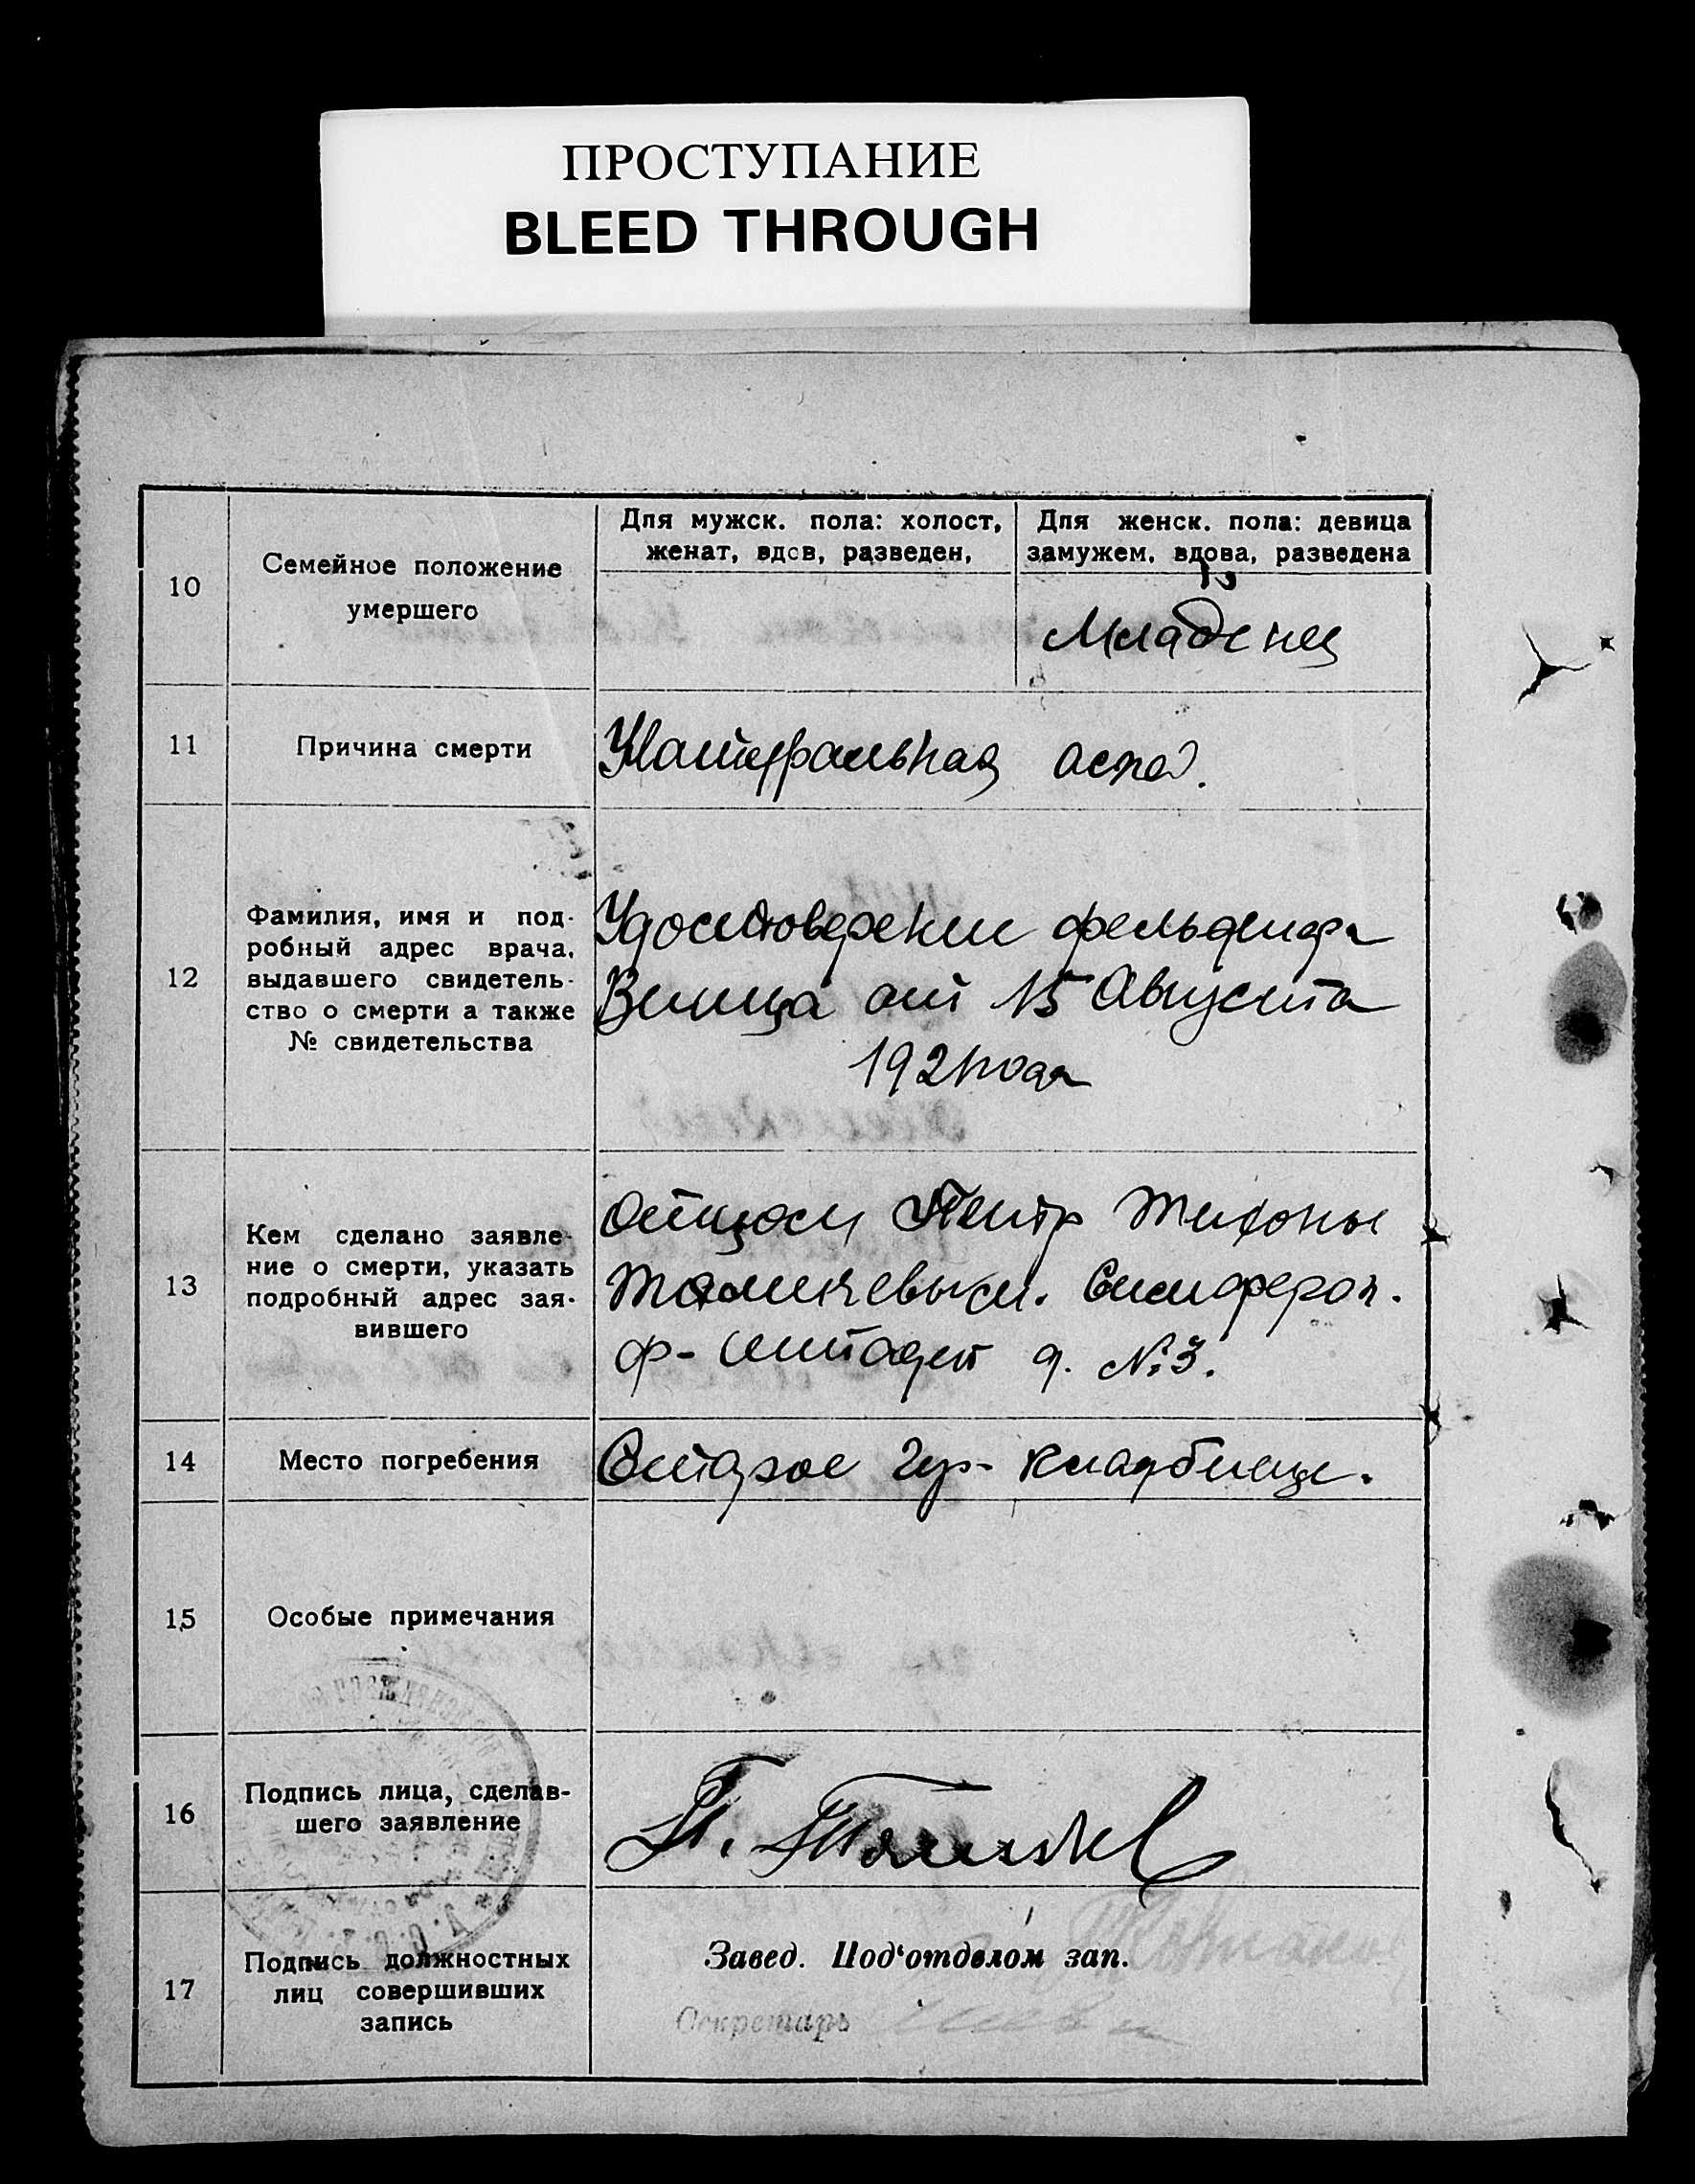 ПРОСТУПАНИЕ
BLEED THROUGH
10
Семейное положение
умершего
Для мужск. пола: холост,
женат, вдов, разведен,
Для женск. пола: девица
замужем, вдова, разведена
Младенец
11
Причина смерти
Натуральная оспа.
12
Фамилия, имя и под-
робный адрес врача,
выдавшего свидетель-
ство о смерти а также
№ свидетельства
Удостоверение фельдшера
от 15 Августа
1921 года
13
Кем сделано заявле-
ние о смерти, указать
подробный адрес зая-
вившего
Отцом Петр
Симфероп.
д. № 3.
14
Место погребения
Старое кладбище.
15
Особые примечания
16
Подпись лица, сделав-
шего заявление
П.
17
Подпись должностных
лиц совершивших
запись
Завед. Под'отделом зап.
Секретарь